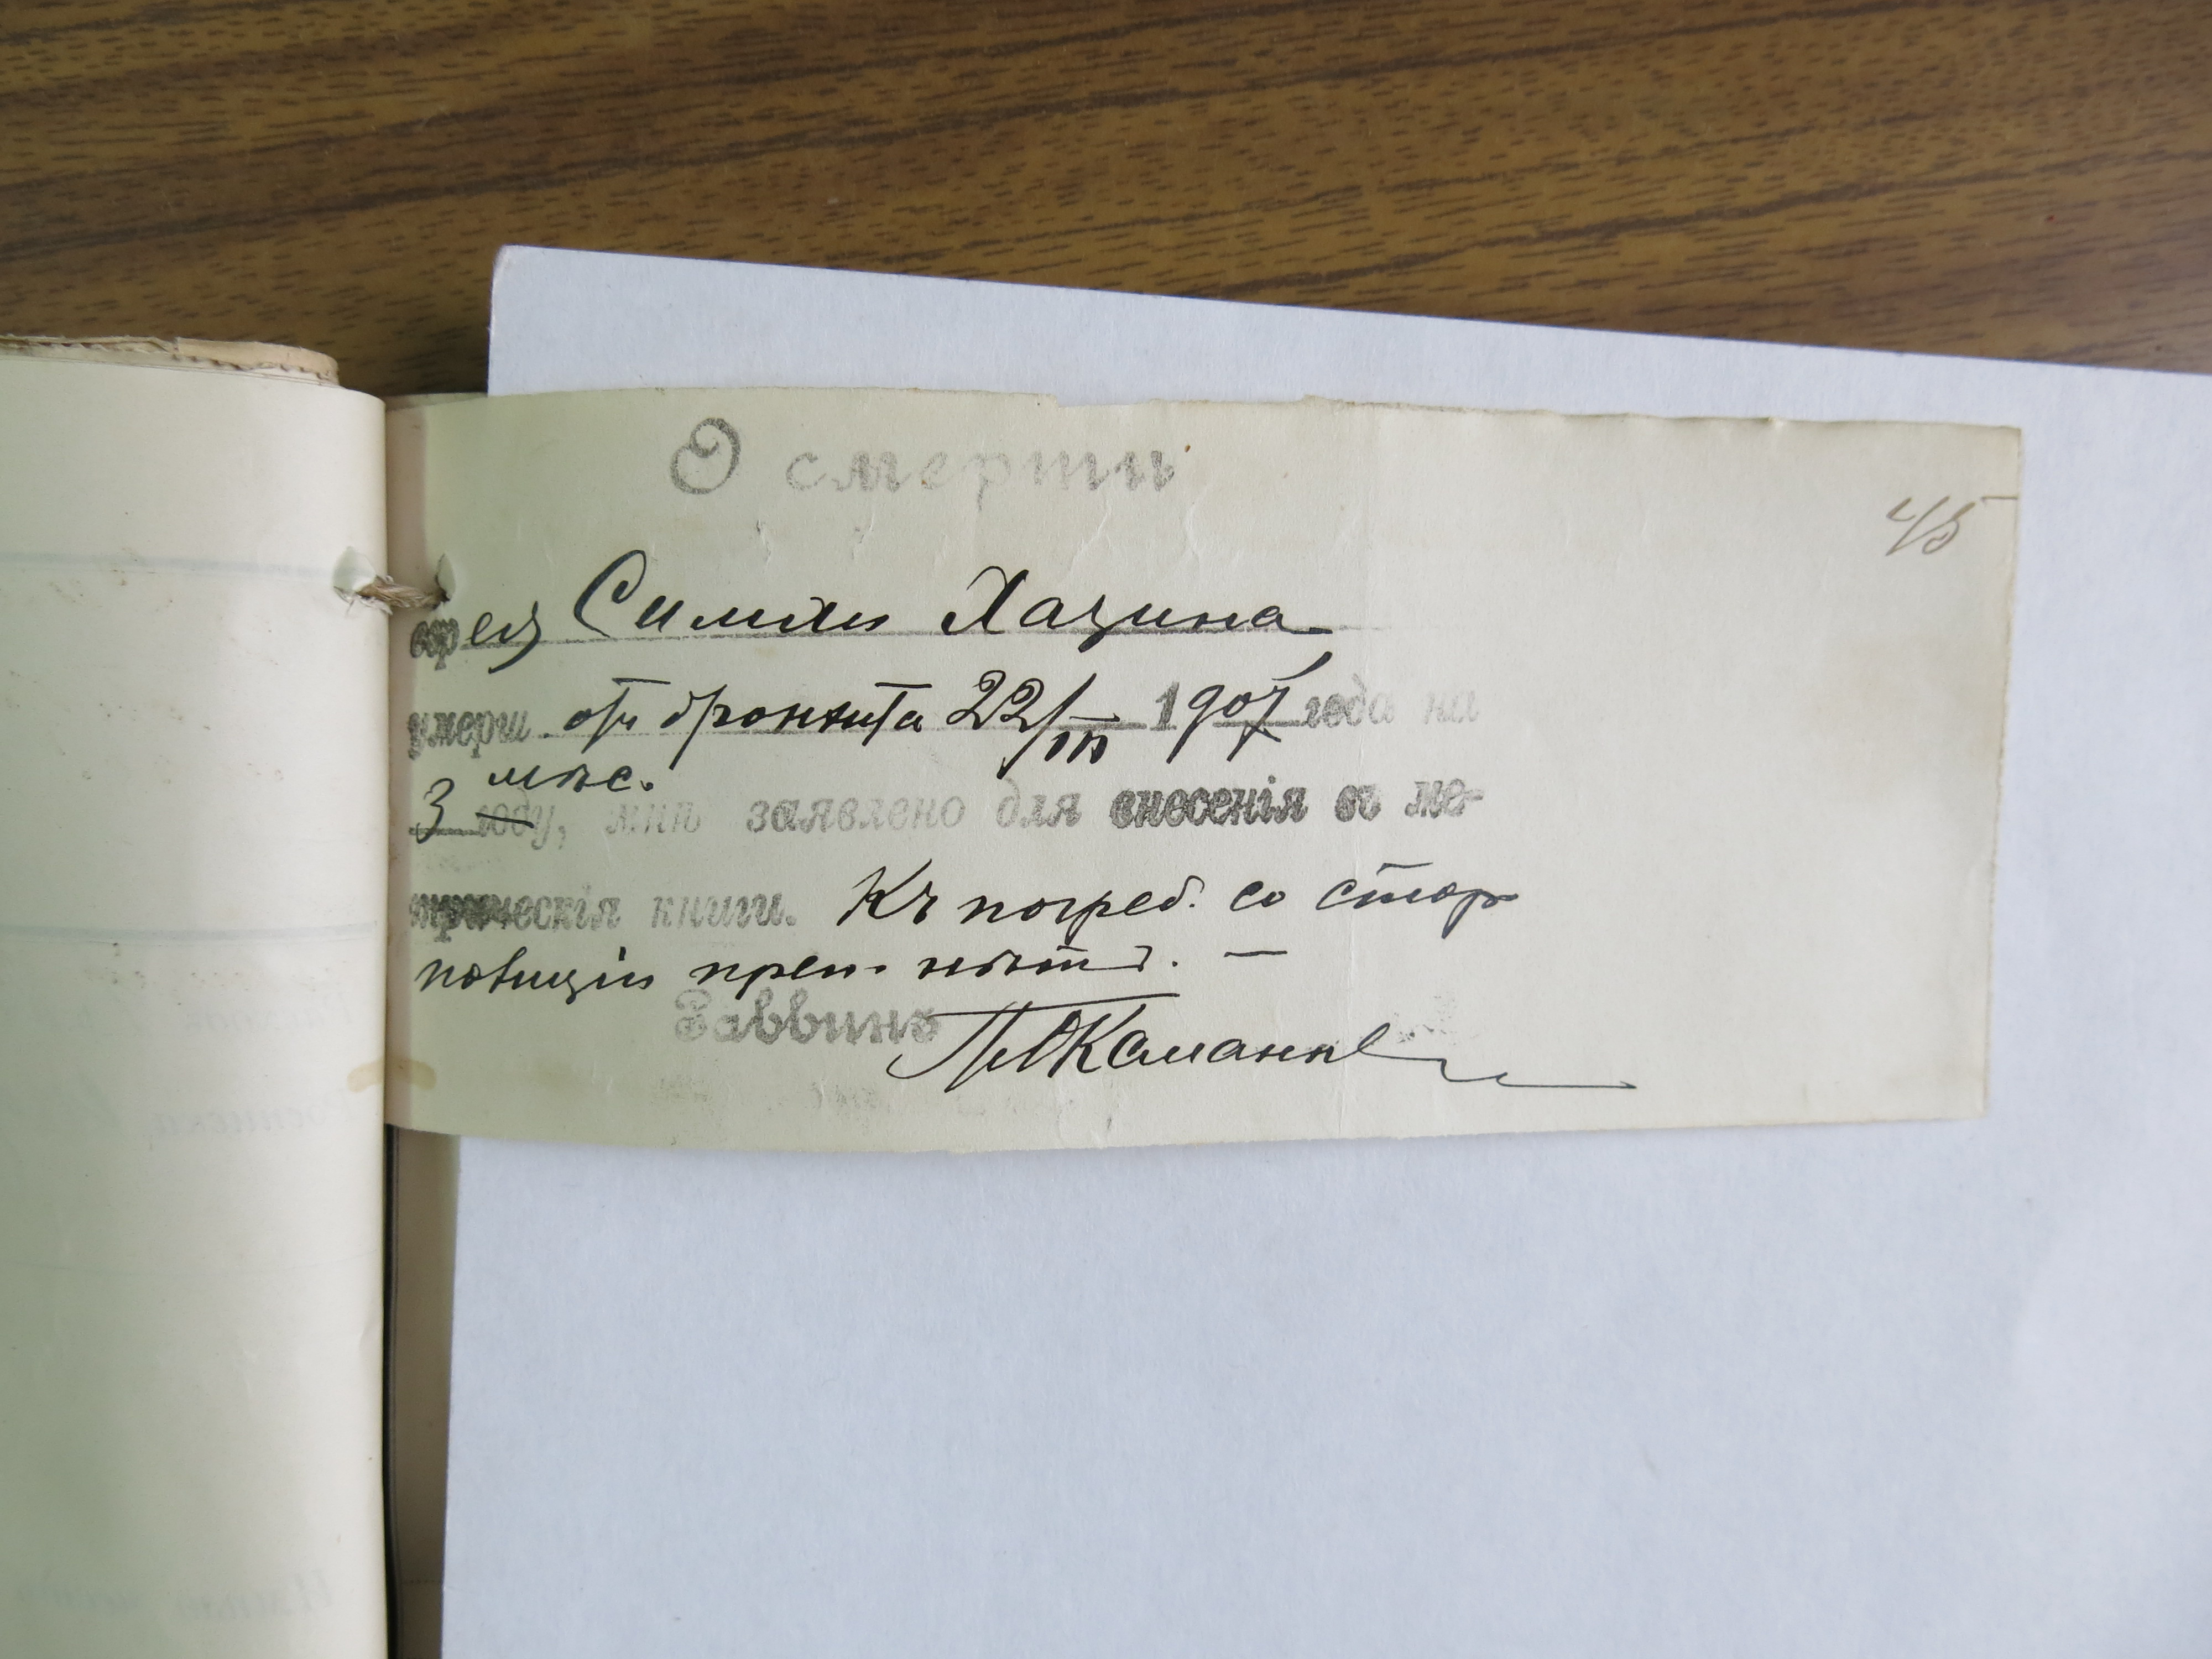 О смерти
45
евр ея Симхи Хазина
умерш. отъ бронхита 22/III 1907 года на
3 мѣс. году, мнѣ заявлено для внесенія въ ме-
трическія книги. Къ погреб. со стор
полиціи преп. нѣтъ. —
Раввинъ